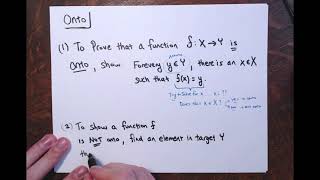 Onto
(1) To Prove that a function f: X → Y is
onto, show For every y ∈ Y, there is an x ∈ X
such that f(x) = y.
Try to Solve for x ... x = ??
Does this x ∈ X?
(2) To show a function f
is NOT onto, find an element in target Y
th